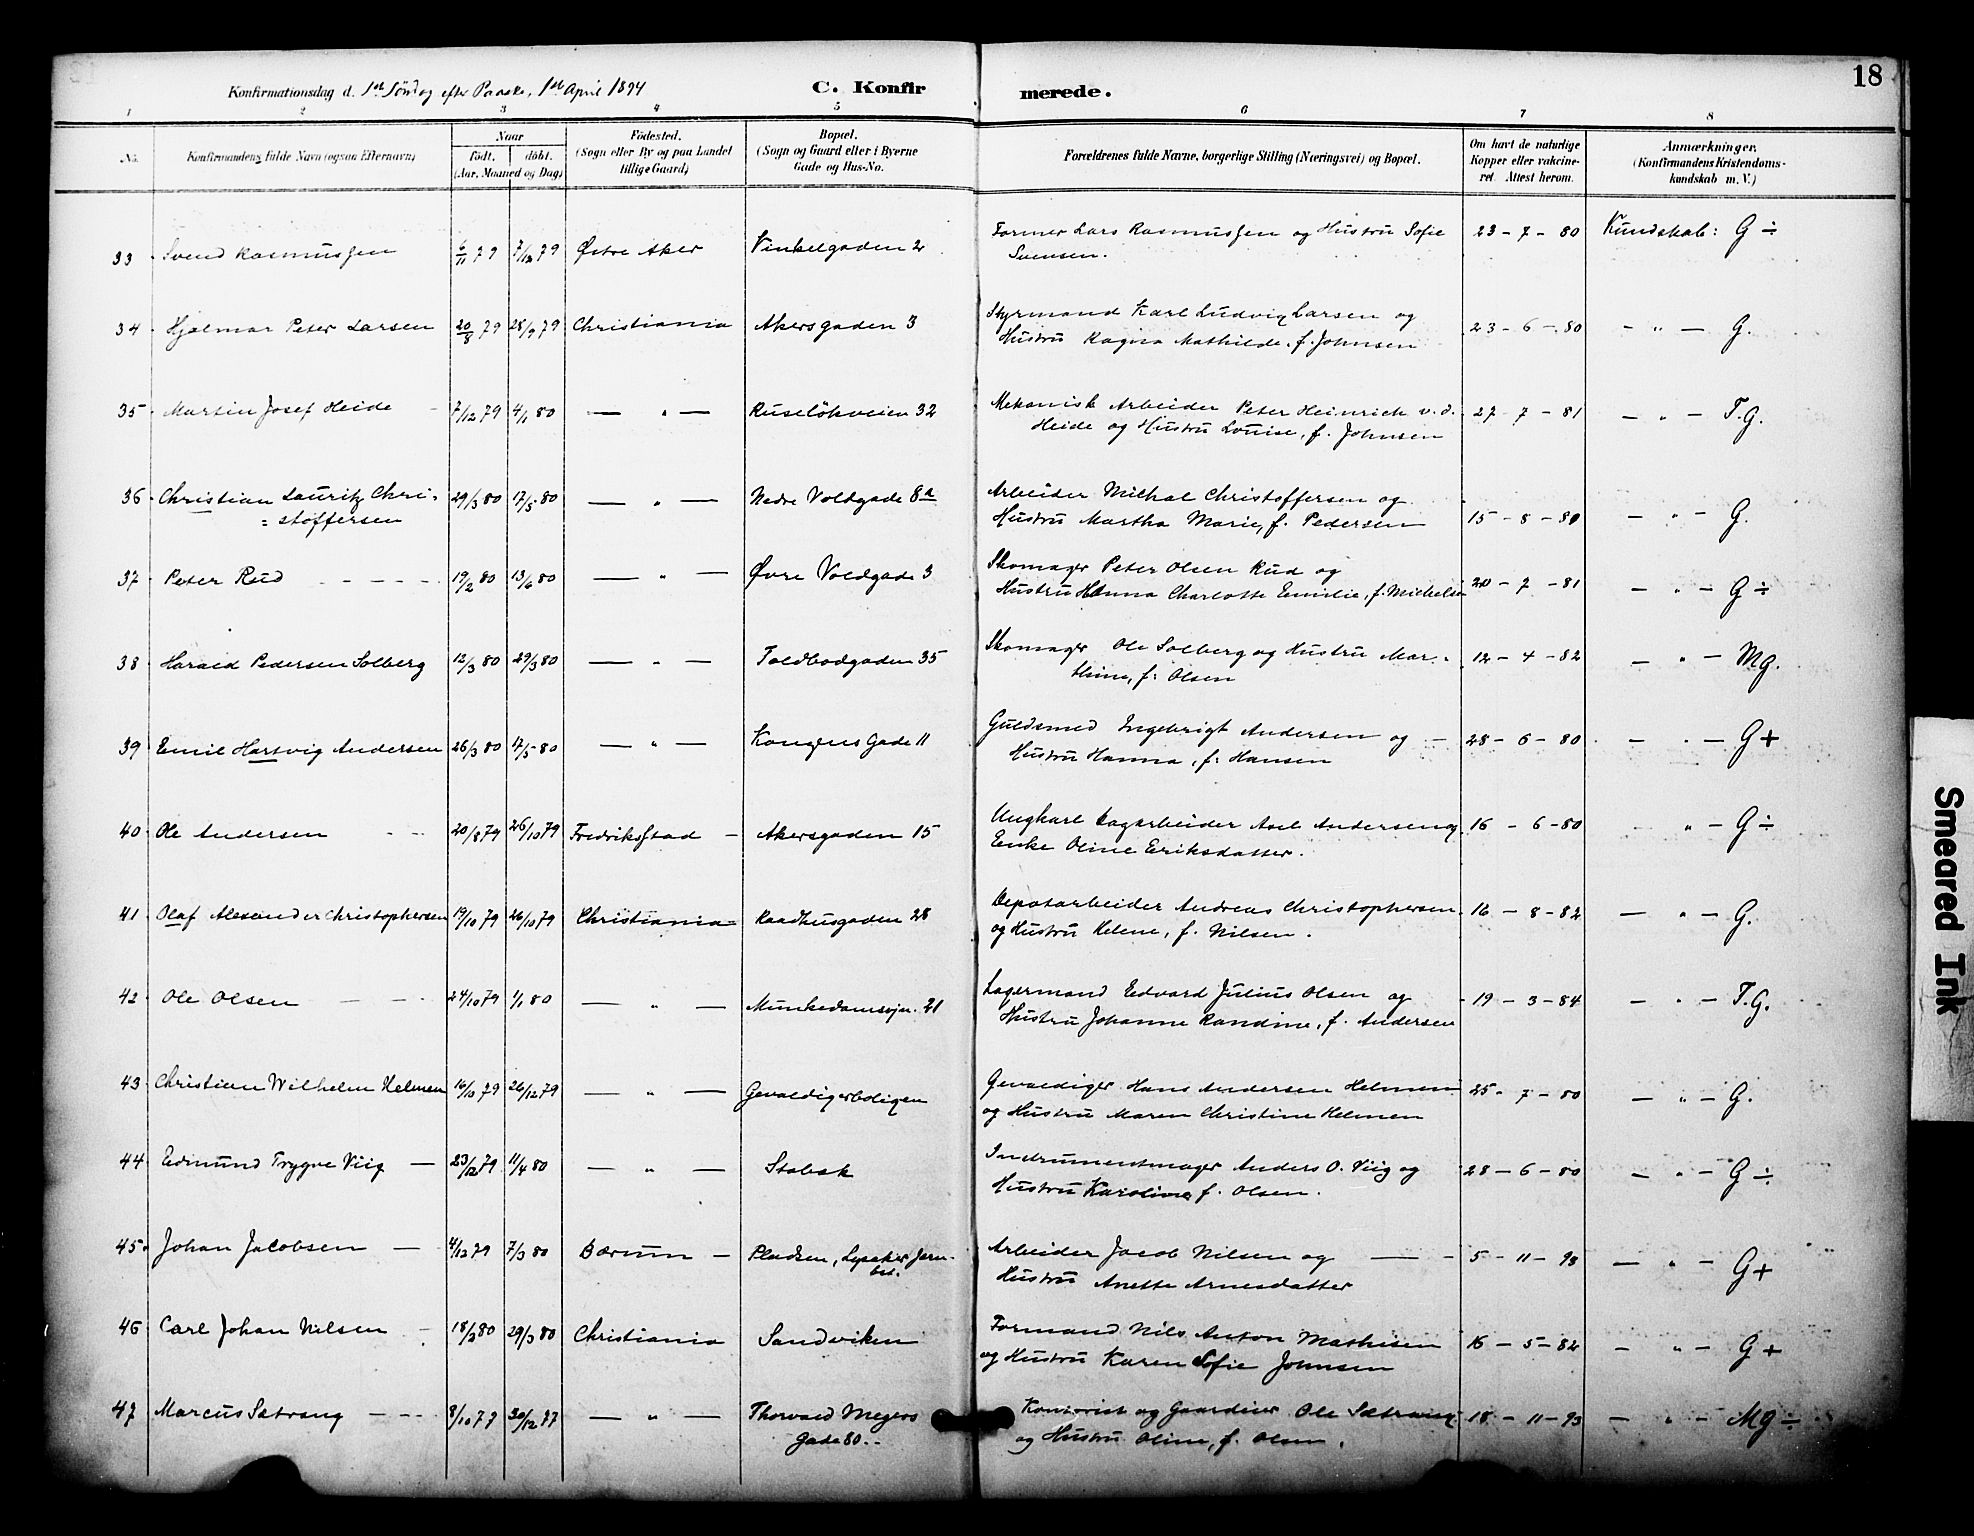 18
Konfirmationsdag d. 1ste Søndag efter Paaske, 1ste April 1894 C. Konfirmerede.
1 2 3 4 5 6 7 8
No. Konfirmandens fulde Navn (ogsaa Efternavn) Naar født. døbt. (Aar, Maaned og Dag) Fødested. (Sogn eller By og paa Landet tillige Gaard) Bopæl. (Sogn og Gaard eller i Byerne Gade og Hus-No. Forældrenes fulde Navne, borgerlige Stilling (Næringsvei) og Bopæl. Om havt de naturlige Kopper eller vakcineret. Attest herom. Anmærkninger. (Konfirmandens Kristendomskundskab m. V.)
33 Svend Rasmussen 6/11 79 7/12 79 Østre Aker Vinkelgaden 2 Former Lars Rasmussen og Hustru Sofie 23-7-80 Kundskab: G ÷
Svensen.
34 Hjalmar Peter Larsen 20/8 79 28/9 79 Christiania Akersgaden 3 Styrmand Karl Ludvig Larsen og 23-6-80 — " — G.
Hustru Ragna Mathilde, f. Johnsen
35 Martin Josef Heide 7/12 79 4/1 80 — " — Ruseløkveien 32 Mekanisk Arbeider Peter Heinrich v. d. 27-7-81 — " — T.G.
Heide og Hustru Louise, f. Johnsen
36 Christian Lauritz Chri= 29/3 80 17/5 80 — " — Nedre Voldgade 8a Arbeider Michal Christoffersen og
=stoffersen Hustru Martha Marie, f. Pedersen 15-8-80 — " — G.
37 Peter Rud 19/2 80 13/6 80 — " — Øvre Voldgade 3 Skomager Peter Olsen Rud og
Hustru Hanna Charlotte Emilie, f. Michelsen 20-7-81 — " — G ÷
38 Harald Pedersen Solberg 12/3 80 29/3 80 — " — Toldbodgaden 35 Skomager Ole Solberg og Hustru Mar- 12-4-82 — " — Mg.
thine, f. Olsen
39 Emil Hartvig Andersen 26/3 80 17/5 80 — " — Kongens Gade 11 Guldsmed Ingebrigt Andersen og 28-6-80 — " — G+
Hustru Hanna, f. Hansen
40 Ole Andersen 20/8 79 26/10 79 Fredriksstad Akersgaden 15 Ungkarl Dagarbeider Axel Andersen og 16-6-80 — " — G ÷
Enke Oline Eriksdatter.
41 Olaf Alexander Christophersen 19/10 79 26/10 79 Christiania Raadhusgaden 28 Depotarbeider Andreas Christophersen 16-8-82 — " — G.
og Hustru Helene, f. Nilsen.
42 Ole Olsen 24/10 79 1/1 80 — " — Munkedamsvejen 21 Lagermand Edvard Julius Olsen og 19-3-84 — " — T.G.
Hustru Johanne Randine, f. Andersen
43 Christian Wilhelm Helmen 16/10 79 26/12 79 — " — Gevaldigerboligen Gevaldiger Hans Andersen Helmen 25-7-80 — " — G.
og Hustru Maren Christine Helmen
44 Edmund Trygve Viig 23/12 79 11/4 80 — " — Stabæk Instrumentmager Anders O. Viig og 28-6-80 — " — G ÷
Hustru Karoline f. Olsen.
45 Johan Jacobsen 4/12 79 7/3 80 Bærum Pladsen, Lysaker Jern- Arbeider Jacob Nilsen og 5-11-93 — " — G+
bst. Hustru Anette Arnesdatter
46 Carl Johan Nilsen 18/2 80 29/3 80 Christiania Sandviken Formand Nils Anton Mathisen 16-5-82 — " — G+
og Hustru Karen Sofie Johnsen
47 Marcus Sætrang 8/10 77 30/12 77 — " — Thorvald Meyers Kontorist og Gaardeier Ole Sætrang 18-11-93 — " — MG ÷
Gade 80. og Hustru Oline, f. Olsen.
Smeared Ink